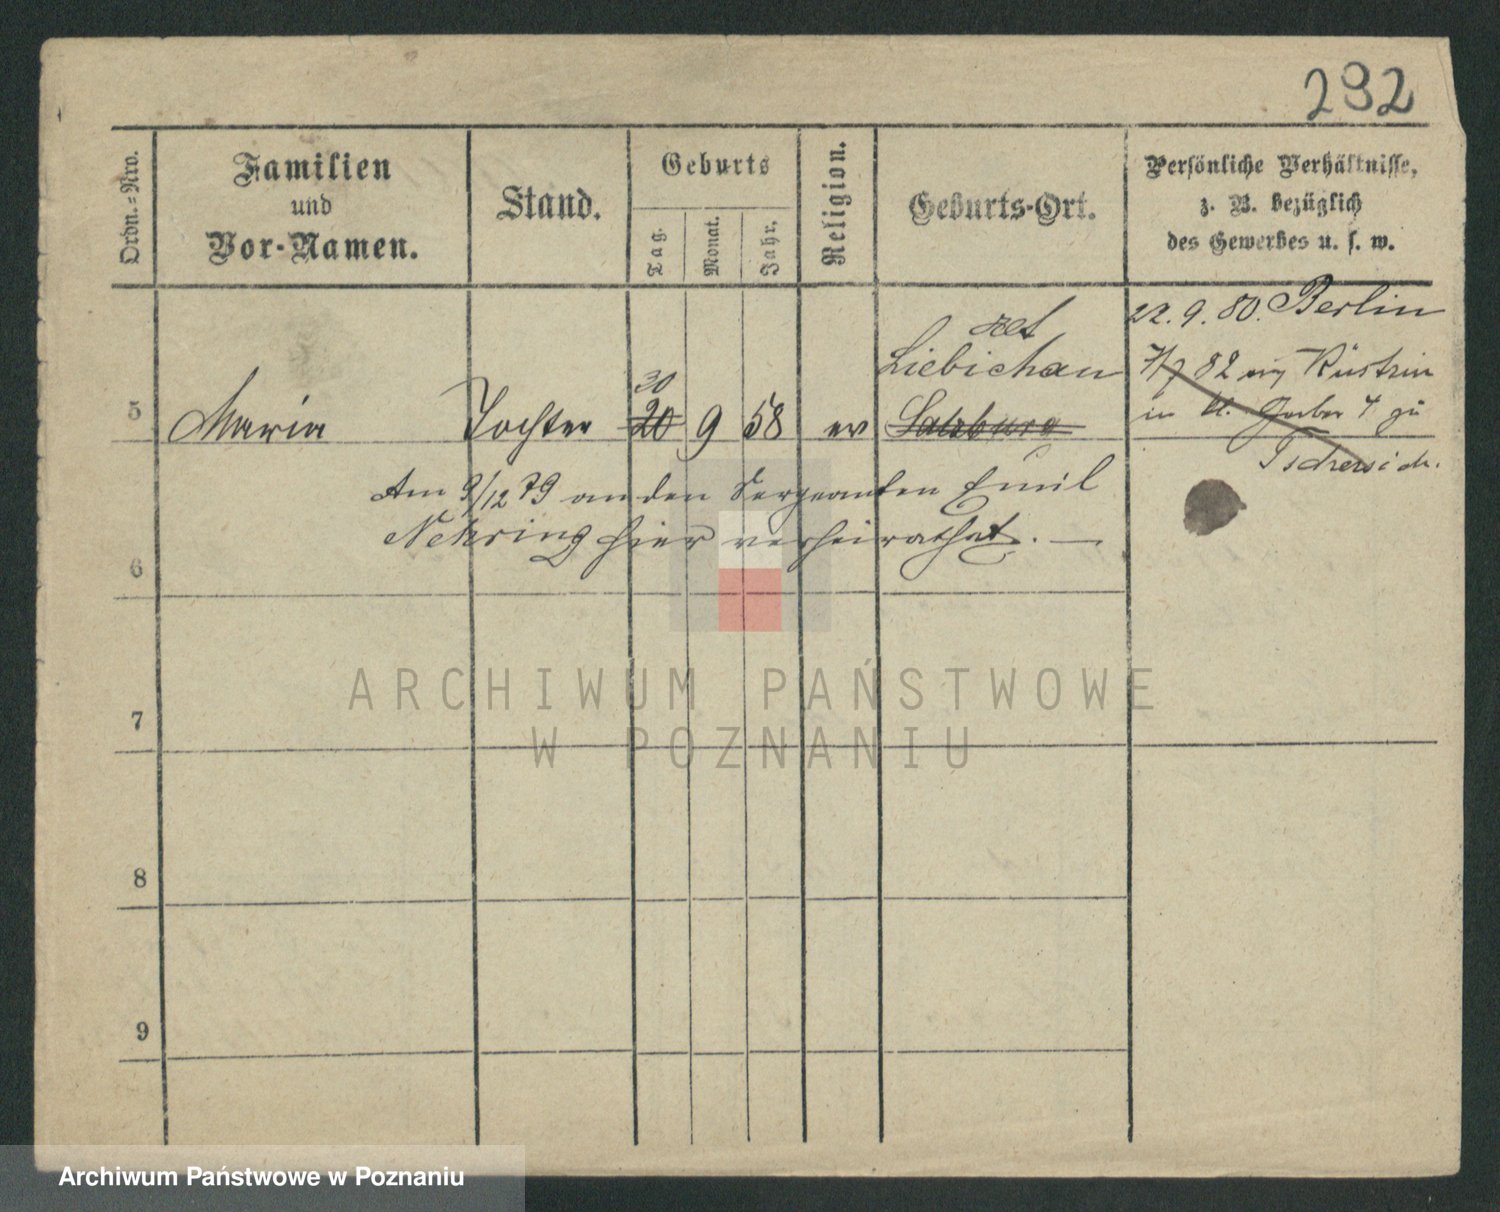 232
Ordn.-Nro.
Familien
und
Vor-Namen.
Stand.
Geburts
Tag.
Monat.
Jahr.
Religion.
Geburts-Ort.
Persönliche Verhältnisse,
z. B. bezüglich
des Gewerbes u. s. w.
22.9.80. Berlin
Liebichau
82 Küstrin
30
5 Maria Tochter 20 9 58 ev Salzburg
in Kl. Gerber 7 zu
Am 9/12 79 an den Sergeanten Emil
Nehring hier verheirathet. —
6
7
8
9
ARCHIWUM PAŃSTWOWE
W POZNANIU
Archiwum Państwowe w Poznaniu